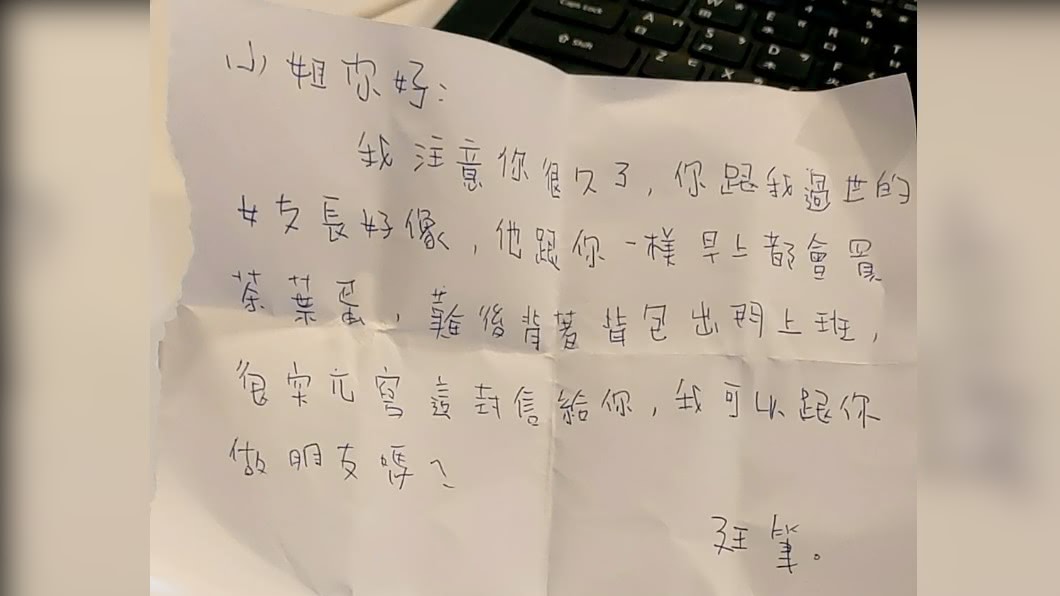 小姐你好：
我注意你很久了，你跟我過世的
女友長好像，他跟你一樣早上都會買
茶葉蛋，難後背著背包出門上班，
很突兀寫這封信給你，我可以跟你
做朋友嗎？
筆。
Caps Lock
Shift
A
S
D
W
E
R
T
Z
X